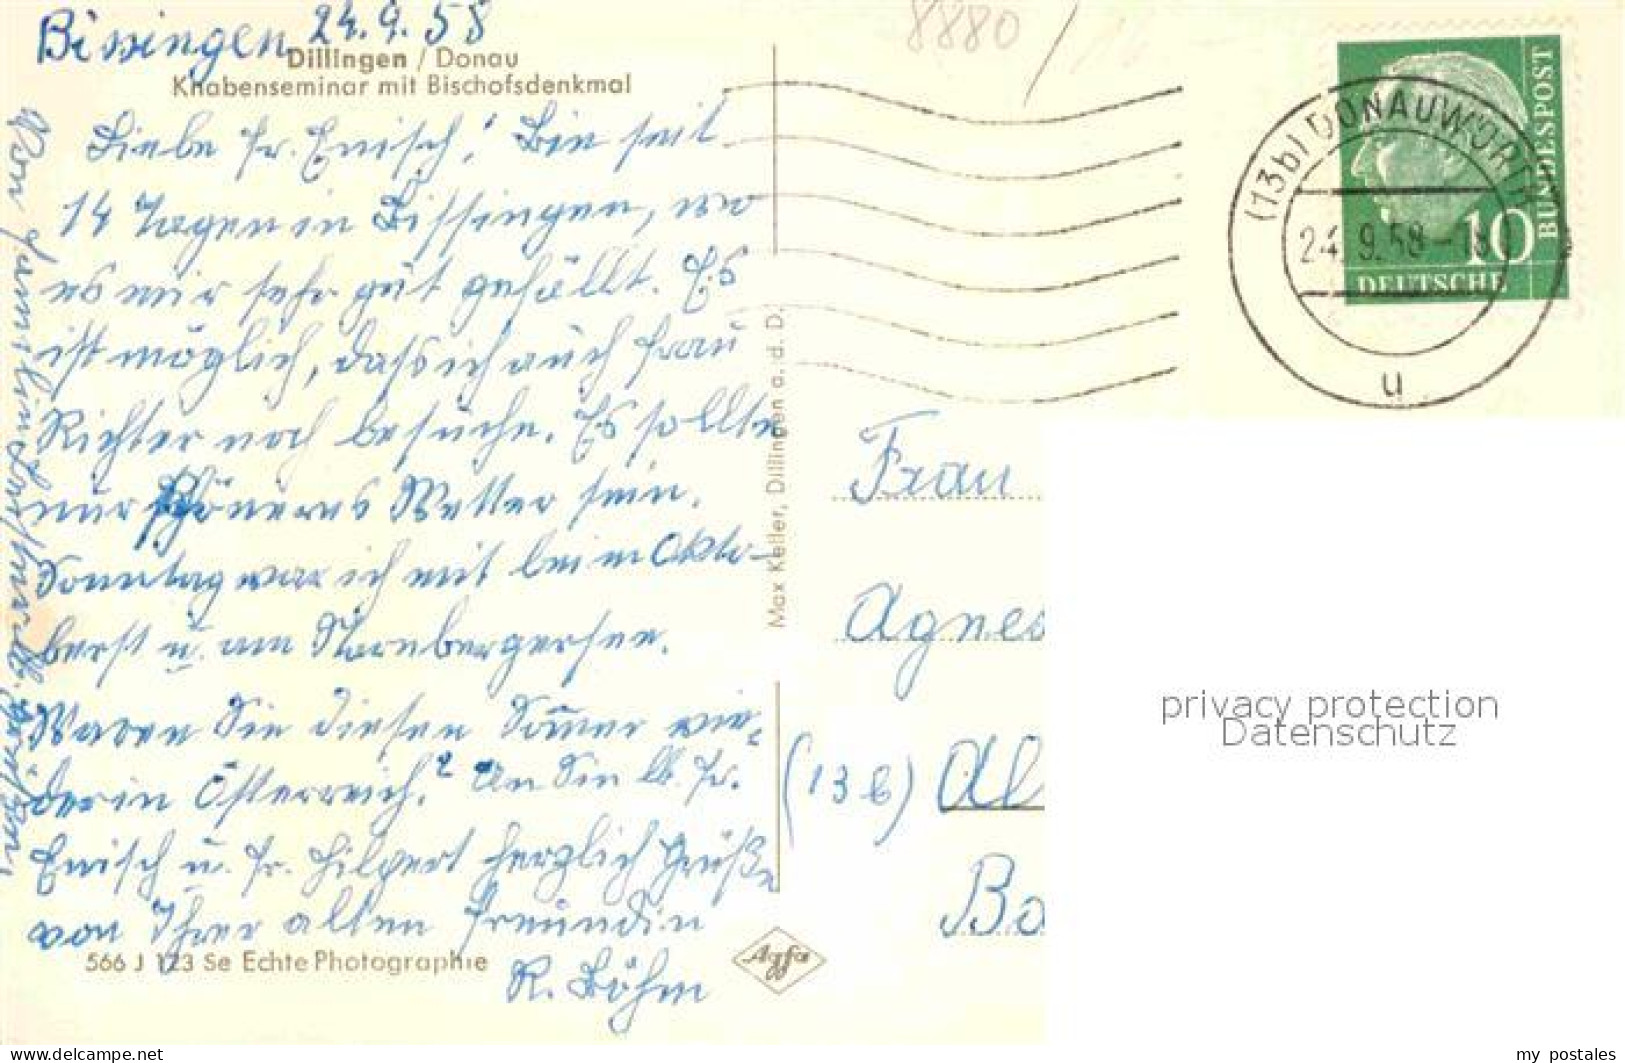 Bissingen 24.9.58
Dillingen / Donau
Knabenseminar mit Bischofsdenkmal
Liebe Fr. Enisch! Bin seit
14 Tagen in Bissingen, wo
es mir sehr gut gefällt. Es
ist möglich, dass ich auch Frau
Richter noch besuche. Es sollte
nur schöneres Wetter sein.
Sonntag war ich mit beim Okto-
berf. u. am Starnbergersee.
Waren Sie diesen Somer wie-
der in Österreich? An Sie lb. Fr.
Enisch u. Fr. Hilpert herzlich Grüße
von Ihrer alten Freundin
R. Böhm
566 J 123 Se Echte Photographie
Agfa
Max Keller, Dillingen a. d. D.
8880
(13b) DONAUWÖRTH
24.9.58-18
u
10
DEUTSCHE
BUNDESPOST
Frau
Agnes
(13b) Al
Ba
privacy protection
Datenschutz
www.delcampe.net
my_postales